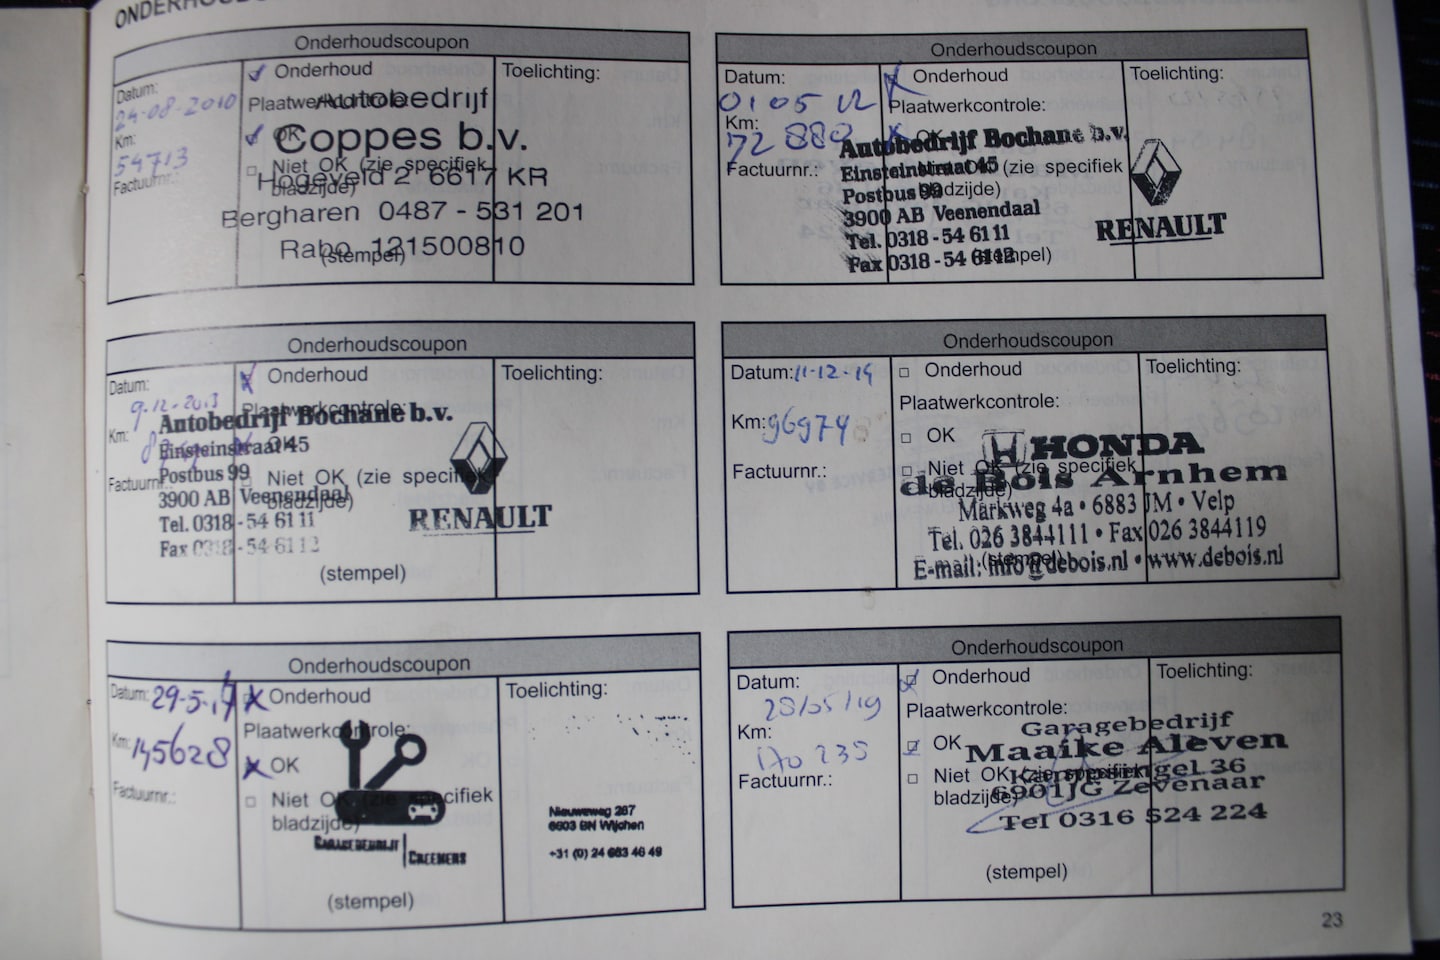 Onderhoudscoupon
Datum:
24-08-2010
Km:
54713
Factuurnr.:
Onderhoud
Plaatwerkcontrole:
OK
Niet OK (zie specifiek
bladzijde)
(stempel)
Toelichting:
Autobedrijf
Coppes b.v.
Hogeveld 2 6617 KR
Bergharen 0487 - 531 201
Rabo 121500810
Onderhoudscoupon
Datum:
01 05 12
Km:
72 889
Factuurnr.:
Onderhoud
Plaatwerkcontrole:
OK
Niet OK (zie specifiek
bladzijde)
(stempel)
Toelichting:
Autobedrijf Bochane b.v.
Einsteinstraat 45
Postbus 99
3900 AB Veenendaal
Tel. 0318 - 54 61 11
Fax 0318 - 54 61 12
RENAULT
Onderhoudscoupon
Datum:
9-12-2013
Km:
Factuurnr.:
Onderhoud
Plaatwerkcontrole:
OK
Niet OK (zie specifiek
bladzijde)
(stempel)
Toelichting:
Autobedrijf Bochane b.v.
Einsteinstraat 45
Postbus 99
3900 AB Veenendaal
Tel. 0318 - 54 61 11
Fax 0318 - 54 61 12
RENAULT
Onderhoudscoupon
Datum: 11-12-14
Km: 96974
Factuurnr.:
Onderhoud
Plaatwerkcontrole:
OK
Niet OK (zie specifiek
bladzijde)
(stempel)
Toelichting:
HONDA
de Bois Arnhem
Markweg 4a • 6883 JM • Velp
Tel. 026 3844111 • Fax 026 3844119
E-mail: info@debois.nl • www.debois.nl
Onderhoudscoupon
Datum: 29-5-17
Km: 145628
Factuurnr.:
Onderhoud
Plaatwerkcontrole:
OK
Niet OK (zie specifiek
bladzijde)
(stempel)
Toelichting:
GARAGEBEDRIJF
CREEMERS
Nieuweweg 267
6603 BN Wijchen
+31 (0) 24 663 46 49
Onderhoudscoupon
Datum:
28/05/19
Km:
170 235
Factuurnr.:
Onderhoud
Plaatwerkcontrole:
OK
Niet OK (zie specifiek
bladzijde)
(stempel)
Toelichting:
Garagebedrijf
Maaike Aleven
Kampsingel 36
6901JG Zevenaar
Tel 0316 524 224
23